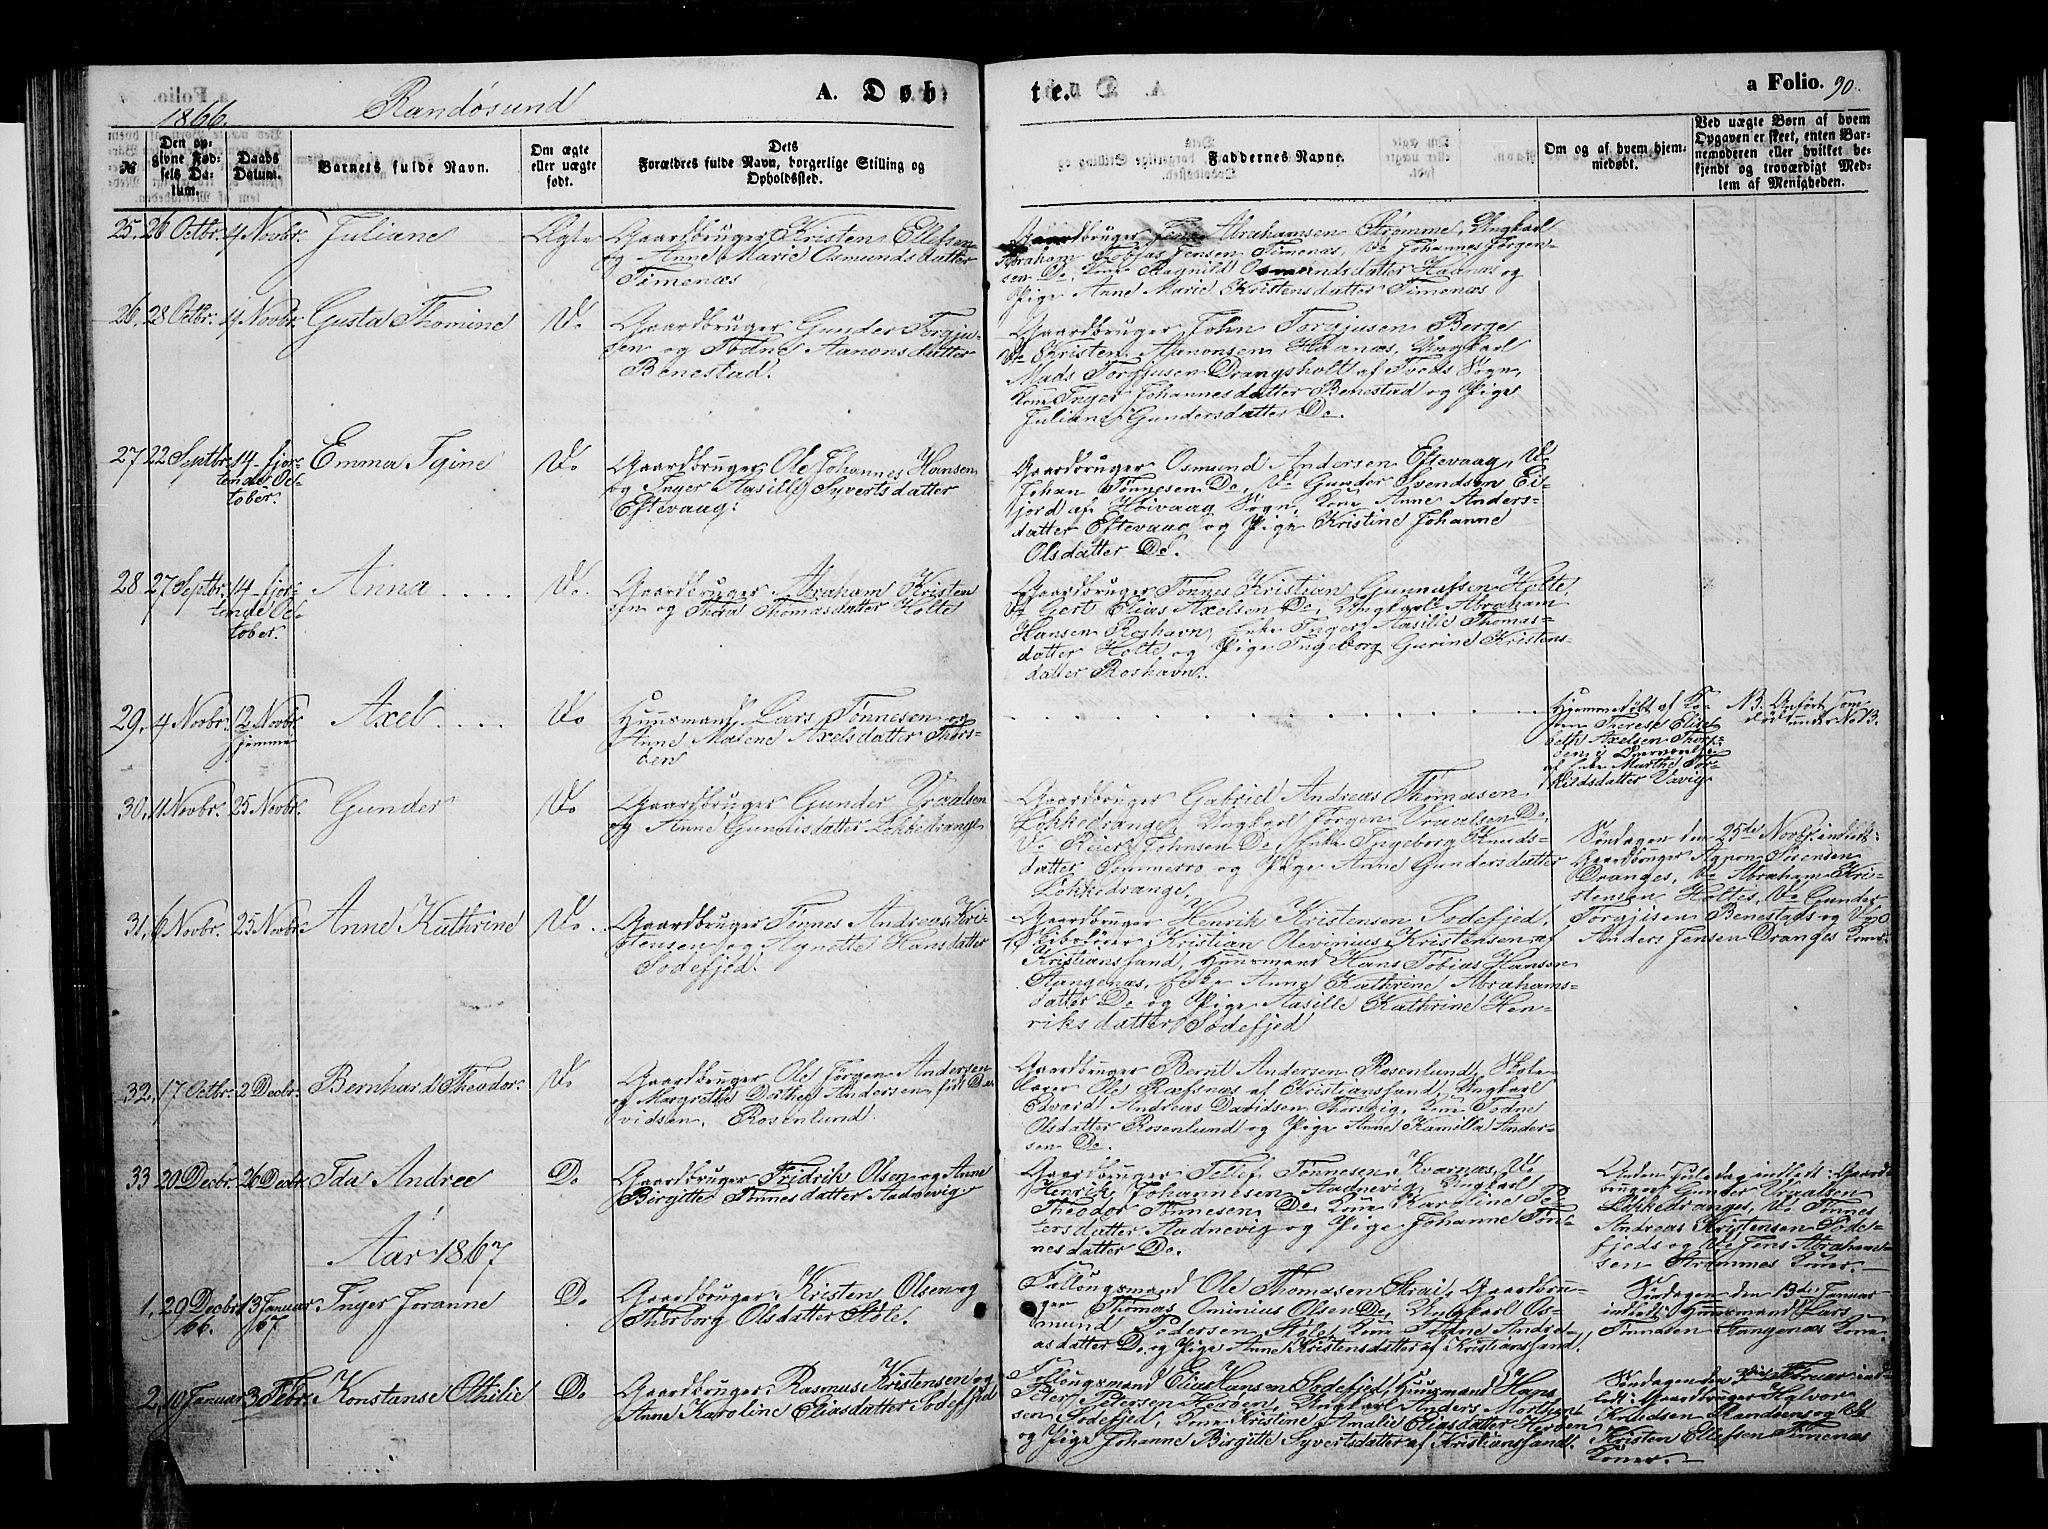 1866.
Randøsund
A. Døb-
te.
a Folio. 90.
№
Den op-
givne Fød-
sels Da-
tum.
Daabs
Datum.
Barnets fulde Navn.
Om ægte
eller uægte
født.
Dets
Forældres fulde Navn, borgerlige Stilling og
Opholdssted.
Faddernes Navne.
Om og af hvem hjem-
medøbt.
Ved uægte Børn af hvem
Opgaven er skeet, enten Bar-
nemoderen eller hvilket be-
kjendt og troværdigt Med-
lem af Menigheden.
25. 26 Octbr. 4 Novbr. Juliane Ægte
Gaardbruger Kristen Ellefsen
og Anne Marie Osmundsdatter
Timenæs
Gaardbruger Jens Abrahamsen Strømme, Ungkarl
Abraham Tobias Jensen Timenæs, Do Johannes Jørgen-
sen Do, Kone Ragnild Osmundsdatter Haanæs og
Pige Anne Marie Kristensdatter Timenæs
26. 28 Octbr. 4 Novbr. Gusta Thomine Do
Gaardbruger Gunder Torgju-
sen og Todne Aanonsdatter
Benestad.
Gaardbruger John Torgjusen Berge
Do Kristen Aanonsen Haanæs, Ungkarl
Mads Torgjusen Drangsholt af Tveds Sogn,
Kone Inger Johannesdatter Benestad og Pige
Juliane Gundersdatter Do.
27 22 Septbr. 14 - fjor-
tende Oc-
tober.
Emma Igine Do
Gaardbruger Ole Johannes Hansen
og Inger Aasille Syvertsdatter
Eftevaag.
Gaardbruger Osmund Andersen Eftevaag, Do
Johan Tønnesen Do, Do Gunder Svendsen Ei-
fjord af Høivaag Sogn, Kone Anne Anders-
datter Eftevaag og Pige Kristine Johanne
Olsdatter Do.
28 27 Septbr. 14 - fjor-
tende Oc-
tober.
Anna Do.
Gaardbruger Abraham Kristen
sen og Thora Thomasdatter Holte
Gaardbruger Tønnes Kristian Gunnufsen Holte,
Do Gert Elias Axelson Do, Ungkarl Abraham
Hansen Roshavn, Enke Inger Aasilie Thomas-
datter Holte og Pige Ingeborg Gurine Kristens-
datter Roshavn.
29. 4 Novbr. 12 Novbr.
hjemme
Axel Do
Huusmand Lars Tønnesen og
Anne Malene Axelsdatter Thors-
øen
Hjemmedøbt af
Therese Elisa-
beth Axelsen Thors-
øen i Overværelse
af Enke Marthe Tor-
kildsdatter Vavig
N.B. Anført som
død under No 13.
30. 11 Novbr. 25 Novbr. Gunder Do
Gaardbruger Gunder Vraalsen
og Anne Gunnisdatter Løkkedrange
Gaardbruger Gabriel Andreas Thomasen
Løkkedrange, Ungkarl Jørgen Vraalsen Do
Do Reier Johnsen Do, Enke Ingeborg Knuds-
datter Sommerro og Pige Anne Gundersdatter
Løkkedrange.
Søndagen den 25de Novbr. indledt:
Gaardbruger Aanon Sørensen
Dranges, Do Abraham Kri-
stensen Holtes, Do Gunder
Torgjusen Benestads og
Anders Jensen Dranges Koner.
31. 6 Novbr. 25 Novbr. Anne Kathrine Do.
Gaardbruger Tønnes Andreas Kri-
stensen og Agnette Hansdatter
Sodefjed.
Gaardbruger Henrik Kristensen Sodefjed,
Kristian Olevinius Kristensen af
Kristianssand, Huusmand Hans Tobias Hansen
Stangenæs, Enke Anne Kathrine Abrahams-
datter Do og Pige Aasille Kathrine Hen-
riksdatter Sodefjed
32. 17 Octbr. 2 Decbr. Bernhard Theodor Do
Gaardbruger Ole Jørgen Andersen
og Margrethe Dorthea Andersen, født Da-
vidsen, Rosenlund.
Gaardbruger Bernt Andersen Rosenlund, Skole-
lærer Ole Ræfsnæs af Kristianssand, Ungkarl
Edvard Andreas Davidsen Thorsvig, Kone Todne
Olsdatter Rosenlund og Pige Anne Kamilla Ander-
sen Do.
33 20 Decbr. 26 Decbr. Ida Andree Do
Gaardbruger Fridrik Olsen og Anne
Birgitte Tønnesdatter Aadnevig
Gaardbruger Tellef Tønnesen Kvarnæs, Do
Henrik Johannesen Aadnevig, Ungkarl
Theodor Tønnesen Do, Kone Karoline Pe-
tersdatter Aadnevig og Pige Johanne Tøn-
nesdatter Do.
Anden Juledag indledt: Gaard-
bruger Gunder Vraalsen
Løkkedranges, Do Tønnes
Andreas Kristensen Sodef-
jeds og Do Jens Abraham-
sen Strømmes Koner.
Aar 1867
1. 29 Decbr.
66.
13 Januar
67.
Inger Joranne Do
Gaardbruger Kristen Olsen og
Therborg Olsdatter Støle.
Fallougsmand Ole Thomasen Strai, Gaardbru-
ger Thomas Ominius Olsen Do, Ungkarl Os-
mund Pedersen Støle, Kone Todne Andre-
asdatter Do og Pige Anne Kristensdatter af Kristianssand.
Søndagen den 13de Januar
indledt: Huusmand Lars
Tønnesen Kone.
2. 10 Januar 3 Febr. Konstanse Othilie Do
Gaardbruger Rasmus Kristensen og
Anne Karoline Eliasdatter Sodefjed
Fallougsmand Elias Hansen Sodefjed, Huusmand Hans
Peter Petersen Herøen, Ungkarl Anders Mortens-
sen Sodefjed, Kone Kristine Amalie Eliasdatter Herøen
og Pige Johanne Birgitte Syvertsdatter af Kristianssand.
Søndagen den 3die Februar ind-
ledt: Gaardbruger Halvor
Knudsen Randøens og
Kristen Ellefsen Timenæs
Koner.